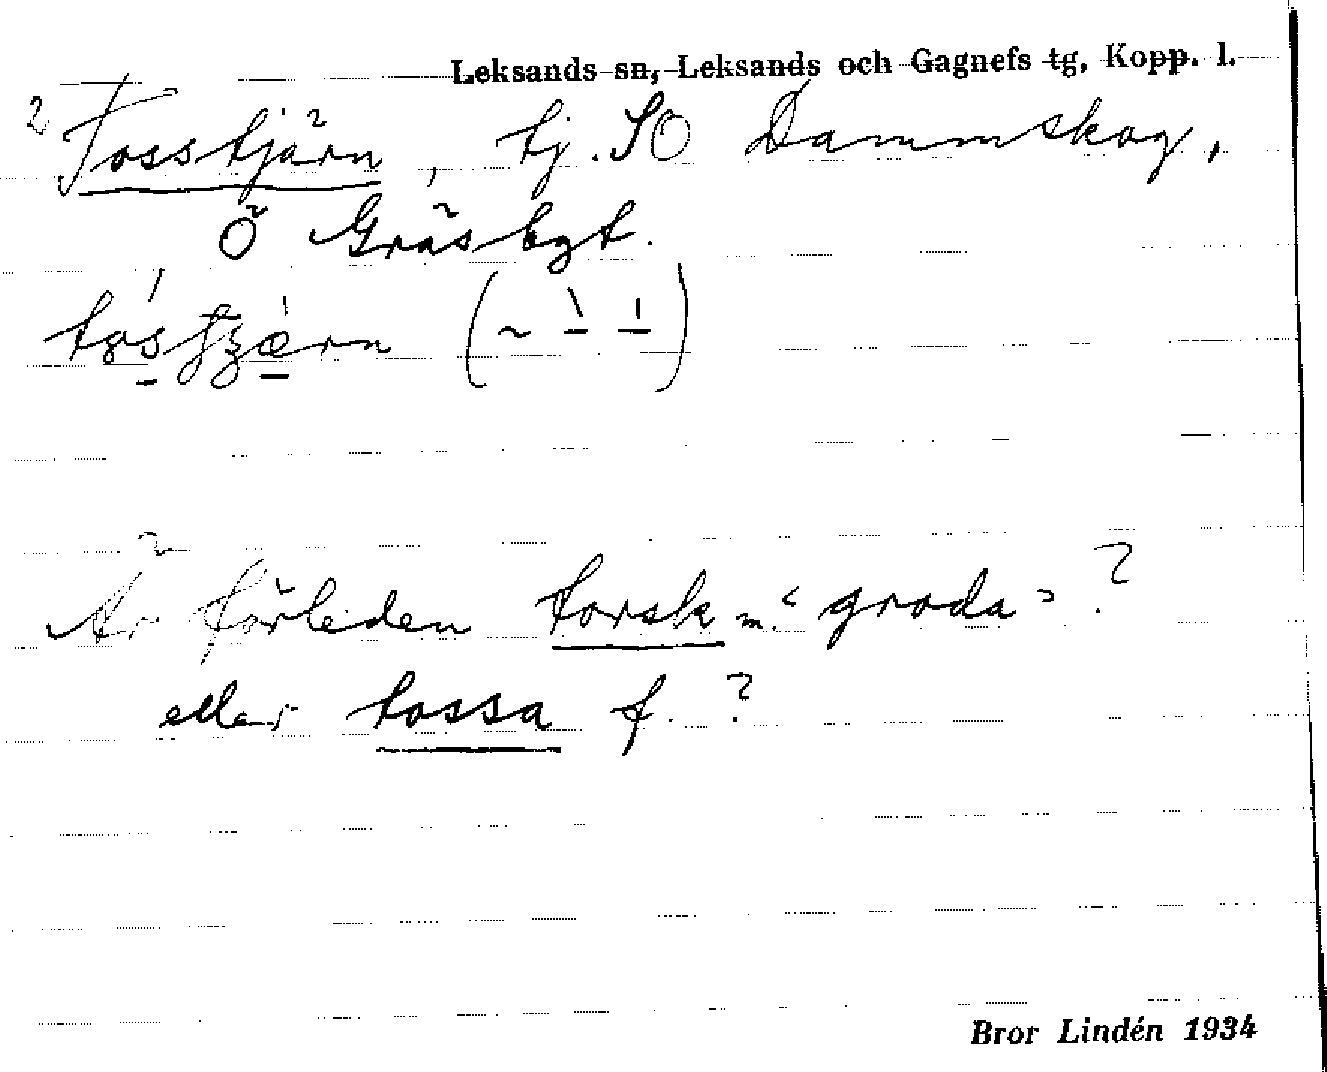 Leksands sn, Leksands och Gagnefs tg, Kopp. l.
2 Tosstjärn, tj. SO Dammskog,
Ö Gräsbgt.
Är förleden torsk m. "groda"?
eller tossa f.?
Bror Lindén 1934